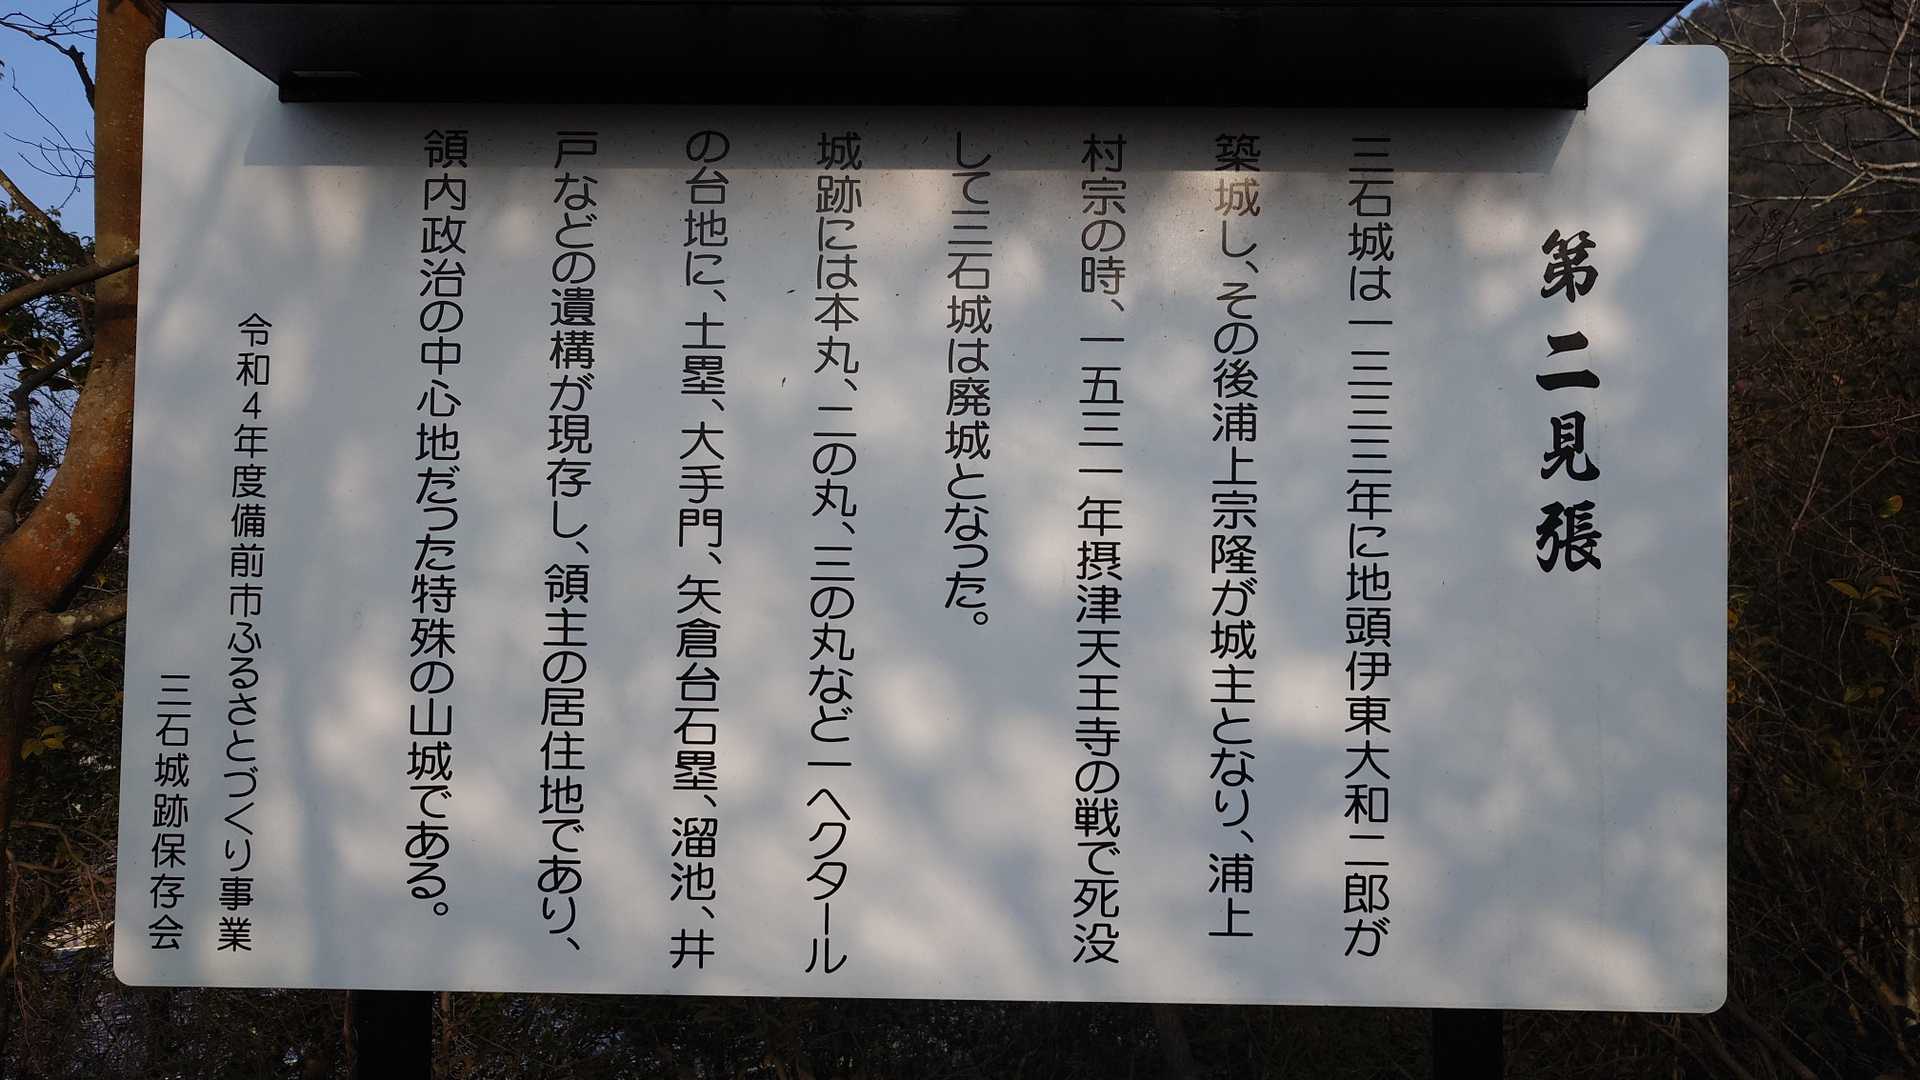 第二見張
三石城は一三三三年に地頭伊東大和二郎が
築城し、その後浦上宗隆が城主となり、浦上
村宗の時、一五三一年摂津天王寺の戦で死没
して三石城は廃城となった。
城跡には本丸、二の丸、三の丸など一ヘクタール
の台地に、土塁、大手門、矢倉台石塁、溜池、井
戸などの遺構が現存し、領主の居住地であり、
領内政治の中心地だった特殊の山城である。
令和4年度備前市ふるさとづくり事業
三石城跡保存会